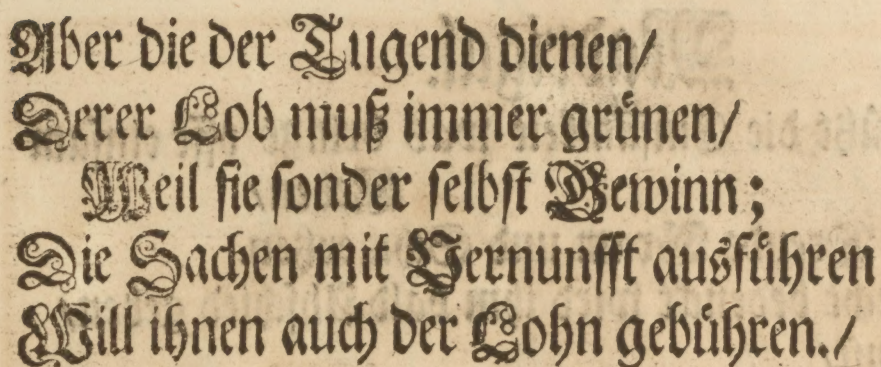 Aber die der Tugend dienen/
Derer Lob muß immer grünen/
Weil sie sonder selbst Gewinn;
Die Sachen mit Vernunfft ausführen
Will ihnen auch der Lohn gebühren./